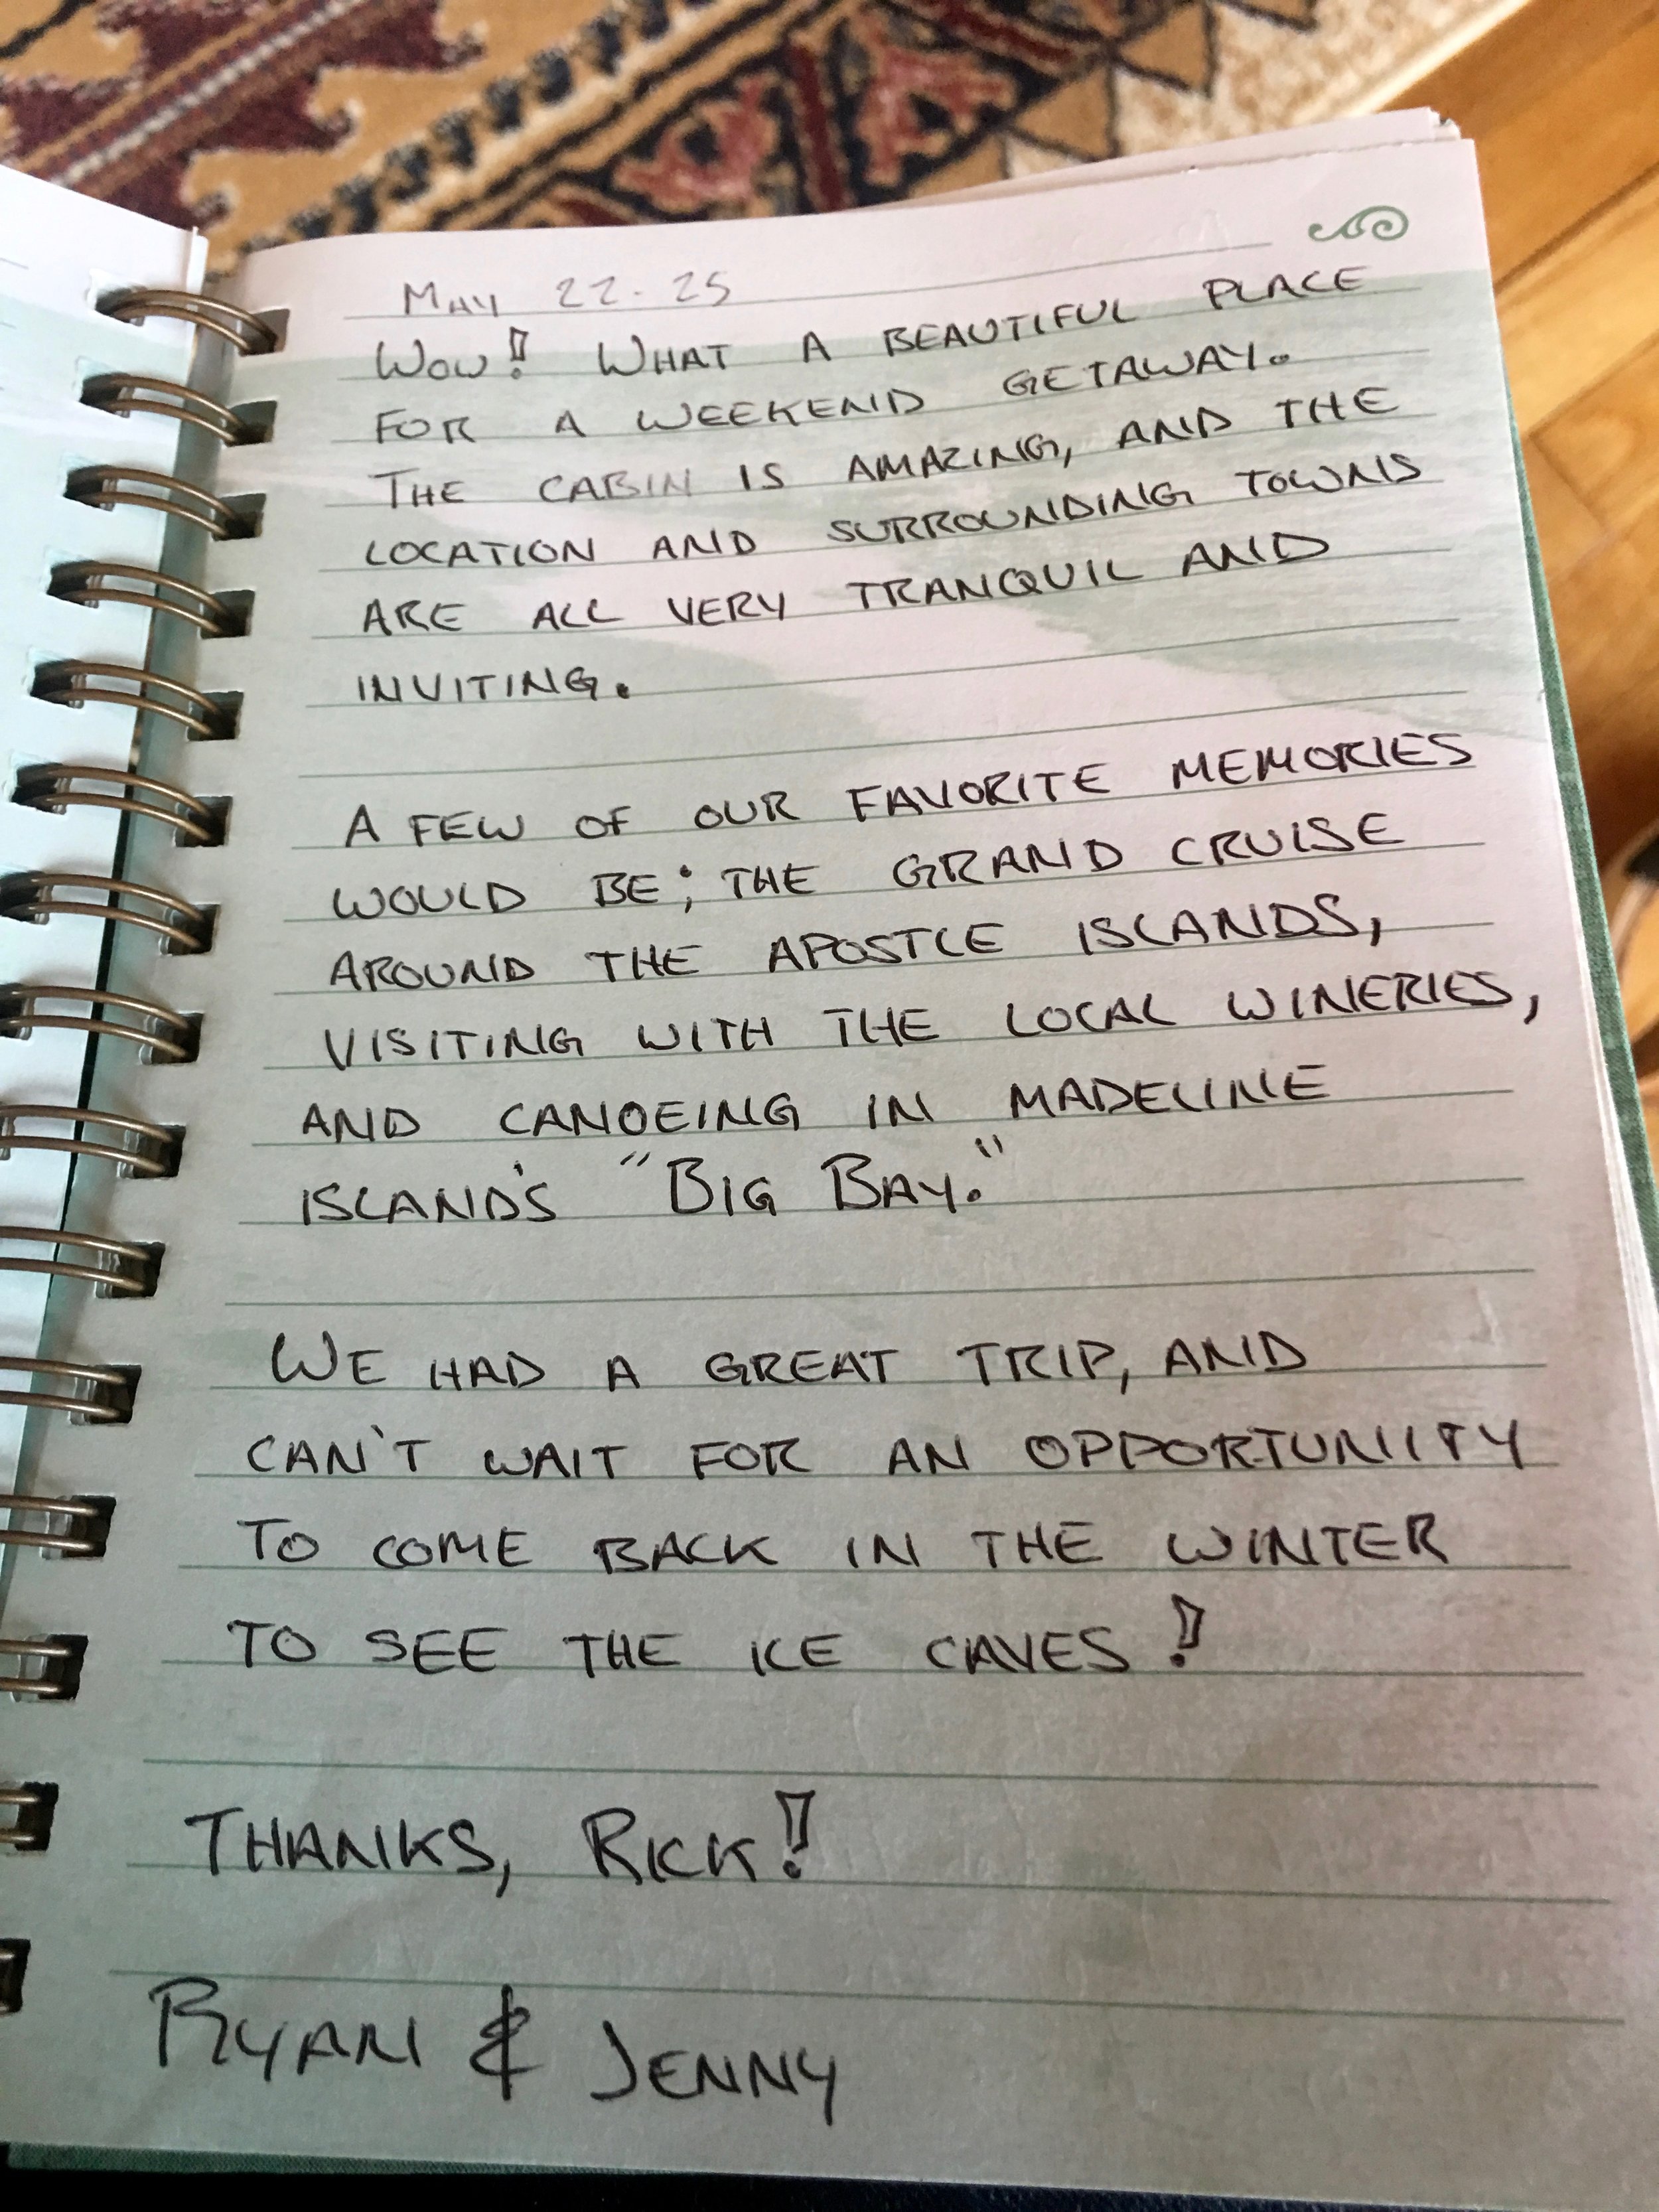 MAY 22-25
WOW! WHAT A BEAUTIFUL PLACE
FOR A WEEKEND GETAWAY.
THE CABIN IS AMAZING, AND THE
LOCATION AND SURROUNDING TOWNS
ARE ALL VERY TRANQUIL AND
INVITING.
A FEW OF OUR FAVORITE MEMORIES
WOULD BE; THE GRAND CRUISE
AROUND THE APOSTLE ISLANDS,
VISITING WITH THE LOCAL WINERIES,
AND CANOEING IN MADELINE
ISLAND'S "BIG BAY."
WE HAD A GREAT TRIP, AND
CAN'T WAIT FOR AN OPPORTUNITY
TO COME BACK IN THE WINTER
TO SEE THE ICE CAVES!
THANKS, RICK!
RYAN & JENNY